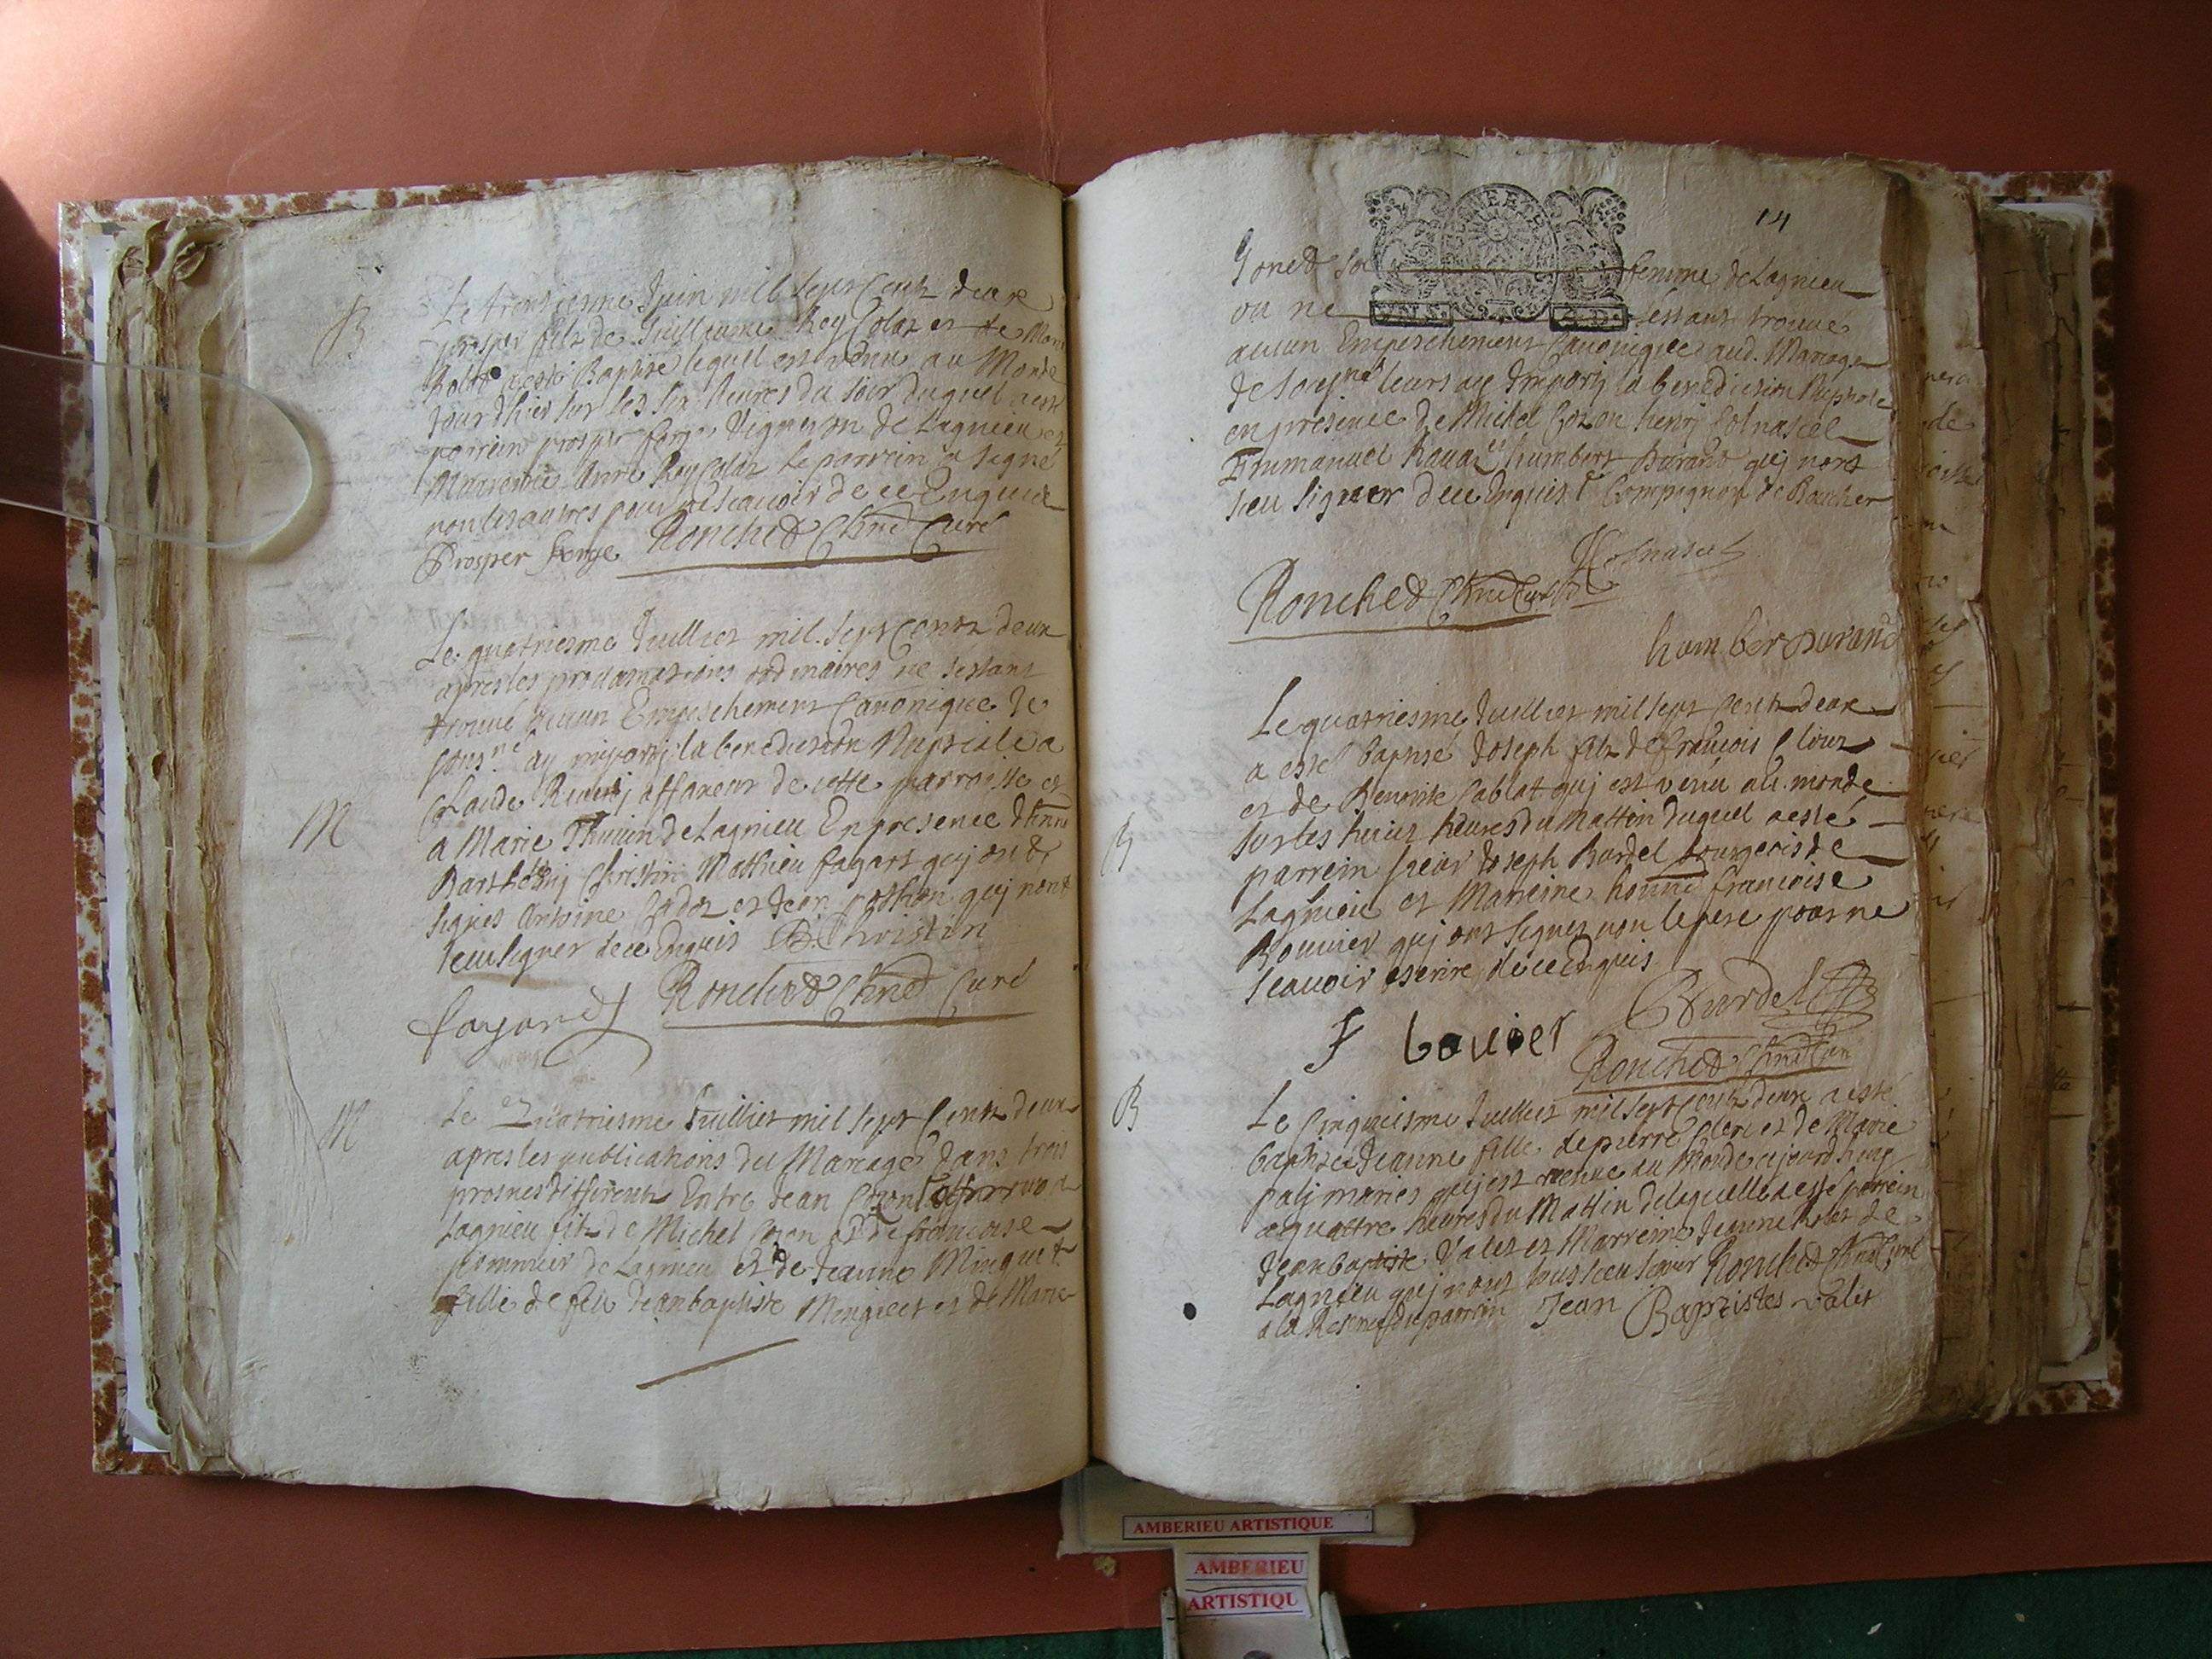 B
Le troisiesme Juin mil sept Cent deux
prosper filz de Guillaume Rey Colaz et de
a esté Baptisé lequel est venu au Monde
jour dhier sur les six heures du soir duquel a esté
parrein prosper forge Vigneron de Lagnieu et
Marreine Anne Rey Colaz Le parrein a signé
non les autres pour ne scavoir de ce Enquis
Prosper forge Ronchet Chne Curé
Le quatriesme Juillet mil sept Cent deux
apres les proclamations ordinaires ne sestant
trouvé aucun Empeschement Canonique Je
sousné ay imparty la benediction Nuptiale a
M
Claude affaneur de cette parroisse et
a Marie Thuuin de Lagnieu En presence
Barthelemj Christin Mathieu fayart quj ont
signes Antoine et Jean pothon quj nont
sceu signer de ce Enquis B Christin
fayard Ronchet Chne Curé
M
Le Quatriesme Juillet mil sept Cent deux
apres les publications du Mariage dans trois
prosnes differents Entre Jean Cozon
Lagnieu filz de Michel Cozon et de francoise
de Lagnieu et de Jeanne Minguet
fille de feu Jean baptiste Minguet et de Marie
14
femme de Lagnieu
ou ne sestant trouvé
aucun Empeschement Canonique aud. Mariage
Je sousné leurs ay Imparty la benediction Nuptiale
en presence de Michel Cozon henrj Colnascel
Emmanuel Ravaz humbert Durand quj nont
sceu signer de ce Enquis Compagnon de
Colnascel
Ronchet Chne Curé
humber Durand
Le quatriesme Juillet mil sept Cent deux
a esté baptisé Joseph filz de francois Clour
et de Benoiste Cablat quj est venu au monde
B
sur les huict heures du Mattin duquel a esté
parrein sieur Joseph Bardel bourgeois de
Lagnieu et Marreine honne francoise
Bouvier quj ont signes non le pere pour ne
scavoir escrire de ce Enquis
Bardel
F bouvier
Ronchet Chne Curé
B
Le Cinquiesme Juillet mil sept Cent deux a esté
baptisée Jeanne fille de pierre Clerc et de Marie
palj mariés quj est venue au Monde
a quattre heures du Mattin de laquelle a esté parrein
Jean baptiste Valet et Marreine Jeanne de
Lagnieu quj nont sceu signer Ronchet Chne Curé
a la du parrein Jean Baptistes valet
AMBERIEU ARTISTIQUE
AMBERIEU
ARTISTIQU